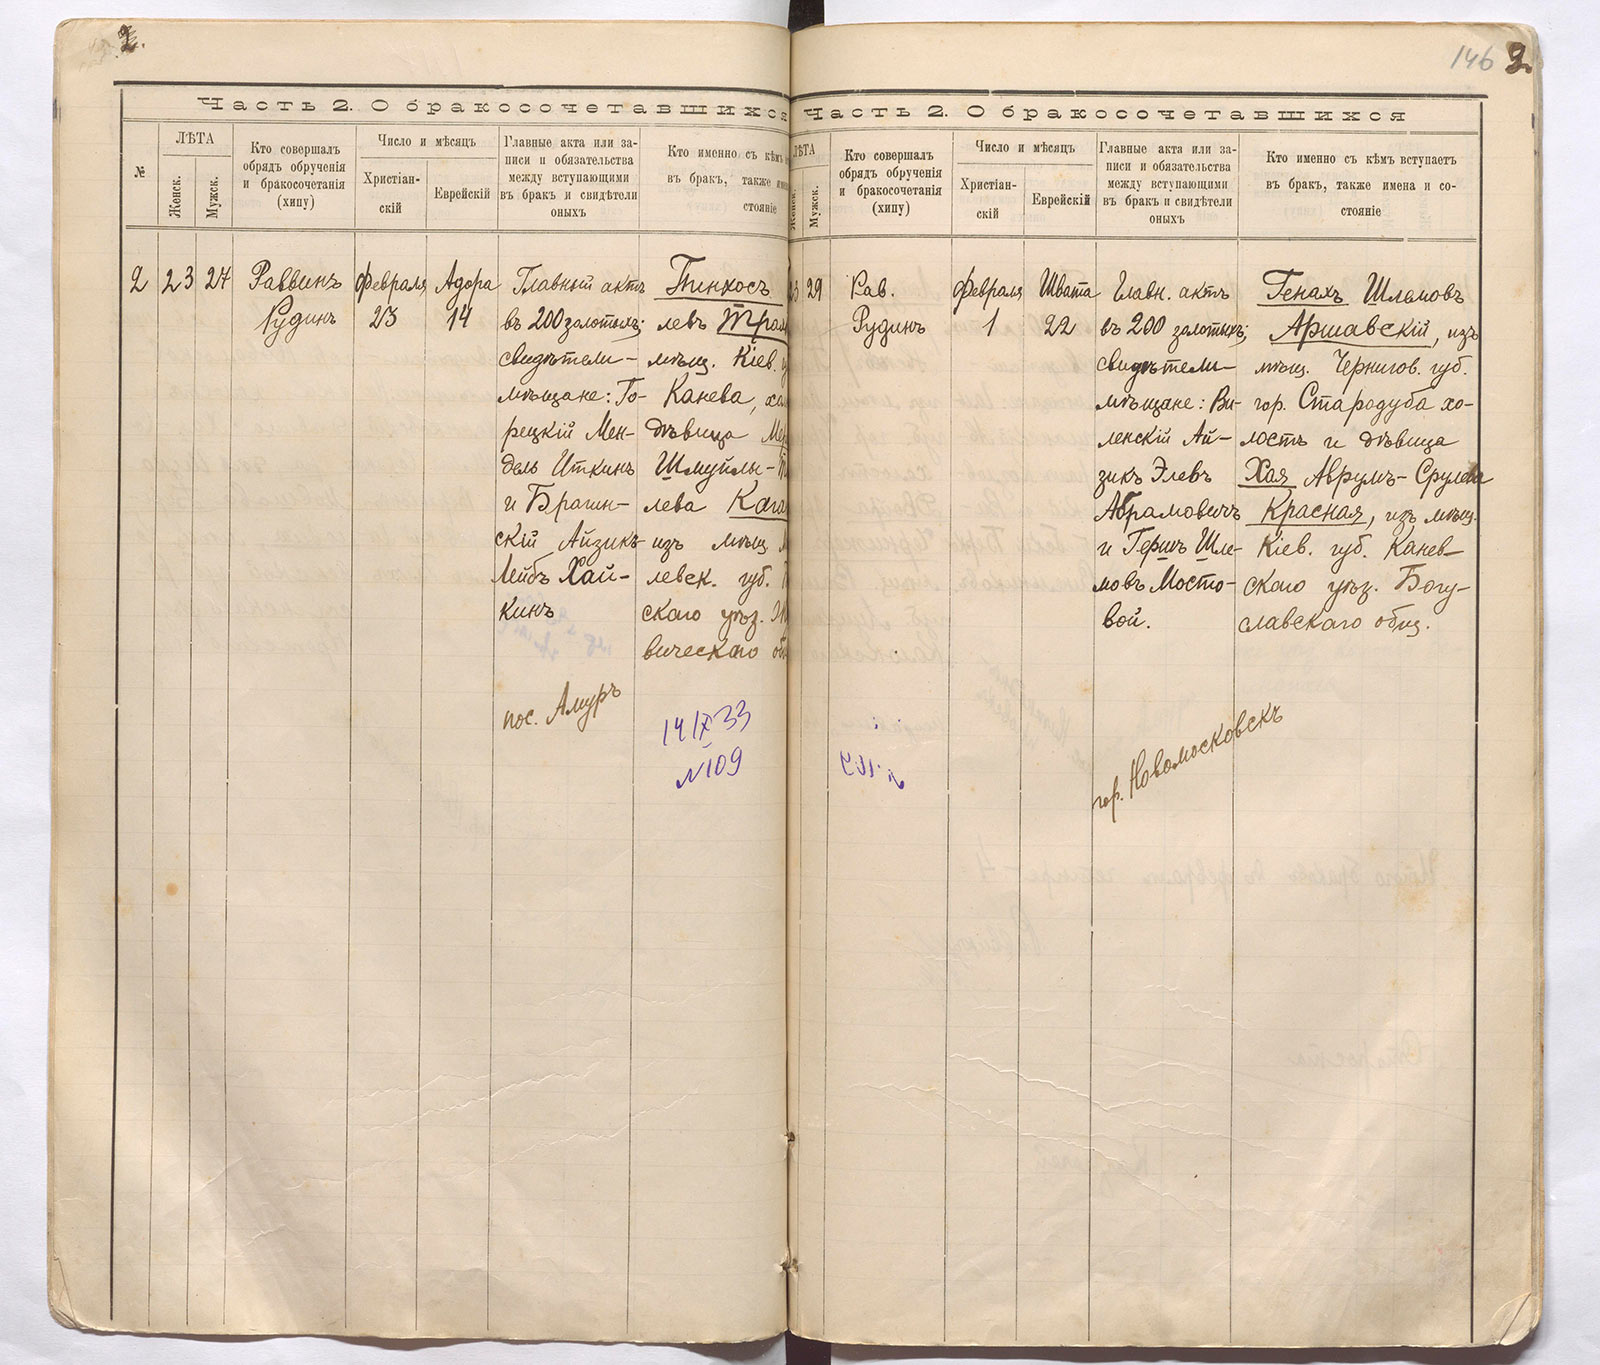 2.
Часть 2. О бракосочетавшихся
№
ЛѢТА
Женск.
Мужск.
Кто совершалъ
обрядъ обрученія
и бракосочетанія
(хипу)
Число и мѣсяцъ
Христіан-
скій
Еврейскій
Главные акта или за-
писи и обязательства
между вступающими
въ бракъ и свидѣтели
оныхъ
Кто именно съ кѣмъ
въ бракъ, также
стояніе
2
23
27
Раввинъ
Рудинъ
Февраля
23
Адора
14
Главный актъ
въ 200 золотыхъ;
свидѣтели –
мѣщане: Го-
рецкій Мен-
дель Иткинъ
и Брагин-
скій Айзикъ-
Лейбъ Хай-
кинъ
пос. Амуръ
Пинхосъ
левъ
мѣщ. Кіев.
Канева,
дѣвица
Шмуйлы-
лева
изъ мѣщ.
левск. губ.
скаго уѣз.
вическаго
14 IX 33
№ 109
146 2.
Часть 2. О бракосочетавшихся
ЛѢТА
Женск.
Мужск.
Кто совершалъ
обрядъ обрученія
и бракосочетанія
(хипу)
Число и мѣсяцъ
Христіан-
скій
Еврейскій
Главные акта или за-
писи и обязательства
между вступающими
въ бракъ и свидѣтели
оныхъ
Кто именно съ кѣмъ вступаетъ
въ бракъ, также имена и со-
стояніе
29
Рав.
Рудинъ
Февраля
1
Швата
22
Главн. актъ
въ 200 золотыхъ;
свидѣтели –
мѣщане: Ви-
ленскій Ай-
зикъ Элевъ
Абрамовичъ
и Гершъ Шле-
мовъ Мосто-
вой.
гор. Новомосковскъ
Генахъ Шлемовъ
Аршавскій, изъ
мѣщ. Чернигов. губ.
гор. Стародуба хо-
лостъ и дѣвица
Хая Аврумъ-Срулева
Красная, изъ мѣщ.
Кіев. губ. Канев-
скаго уѣз. Богу-
славскаго общ.